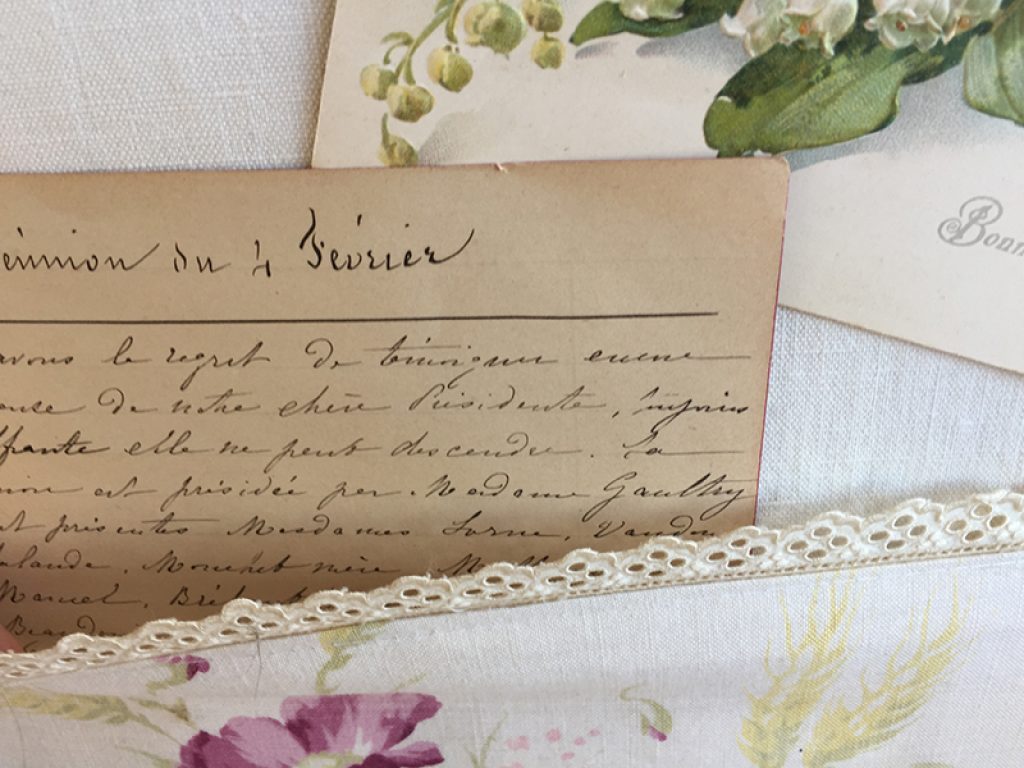 éunion du 4 Février
avons le regret de témoigner encore
de notre chère Présidente, toujours
ffrante elle ne peut descendre. La
nion est présidée par Madame Gaultry
et présentes Mesdames Lorne,
alande,
Marcel,
Bonn